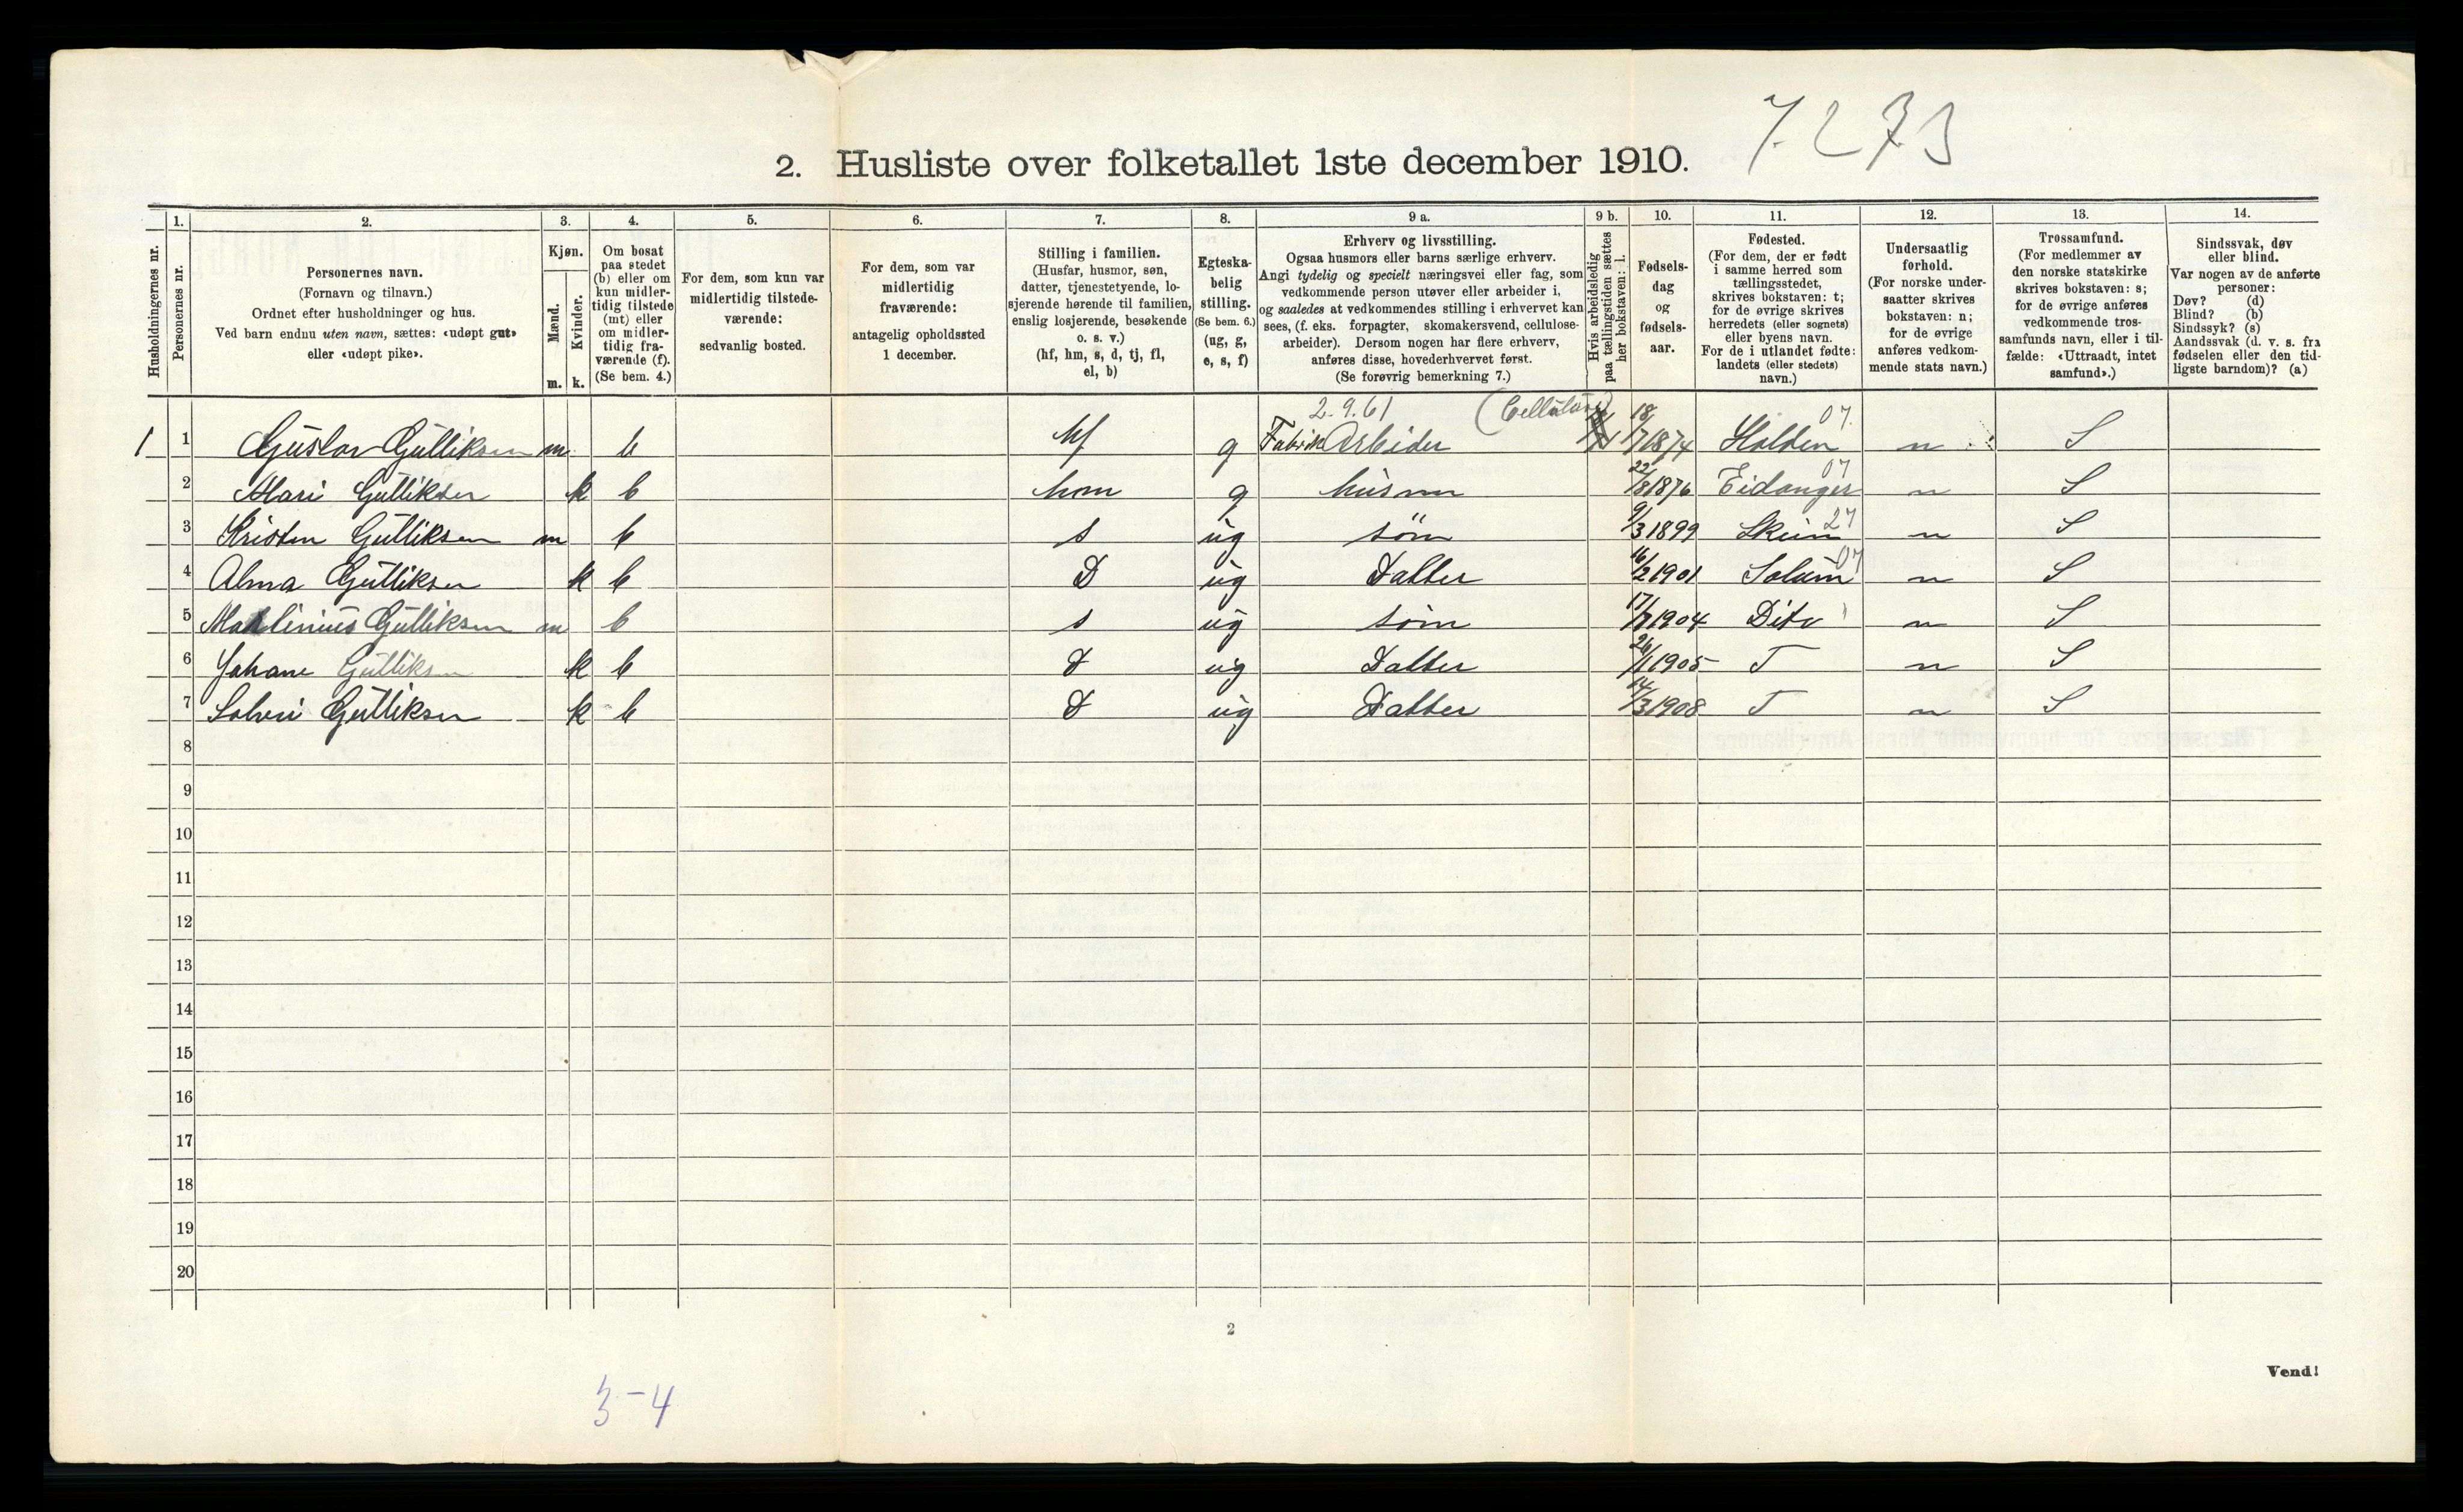 7.273
2. Husliste over folketallet 1ste december 1910.
Husholdningernes nr.
1.
Personernes nr.
2.
Personernes navn.
(Fornavn og tilnavn.)
Ordnet efter husholdninger og hus.
Ved barn endnu uten navn, sættes: «udøpt gut»
eller «udøpt pike».
3.
Kjøn.
Mænd.
m.
Kvinder.
k.
4.
Om bosat
paa stedet
(b) eller om
kun midler-
tidig tilstede
(mt) eller
om midler-
tidig fra-
værende (f).
(Se bem. 4.)
5.
For dem, som kun var
midlertidig tilstede-
værende:
sedvanlig bosted.
6.
For dem, som var
midlertidig
fraværende:
antagelig opholdssted
1 december.
7.
Stilling i familien.
(Husfar, husmor, søn,
datter, tjenestetyende, lo-
sjerende hørende til familien,
enslig losjerende, besøkende
o. s. v.)
(hf, hm, s, d, tj, fl,
el, b)
8.
Egteska-
belig
stilling.
(Se bem. 6.)
(ug, g,
e, s, f)
9 a.
Erhverv og livsstilling.
Ogsaa husmors eller barns særlige erhverv.
Angi tydelig og specielt næringsvei eller fag, som
vedkommende person utøver eller arbeider i,
og saaledes at vedkommendes stilling i erhvervet kan
sees, (f. eks. forpagter, skomakersvend, cellulose-
arbeider). Dersom nogen har flere erhverv,
anføres disse, hovederhvervet først.
(Se forøvrig bemerkning 7.)
9 b.
Hvis arbeidsledig
paa tællingstiden sættes
her bokstaven: l.
10.
Fødsels-
dag
og
fødsels-
aar.
11.
Fødested.
(For dem, der er født
i samme herred som
tællingsstedet,
skrives bokstaven: t;
for de øvrige skrives
herredets (eller sognets)
eller byens navn.
For de i utlandet fødte:
landets (eller stedets)
navn.)
12.
Undersaatlig
forhold.
(For norske under-
saatter skrives
bokstaven: n;
for de øvrige
anføres vedkom-
mende stats navn.)
13.
Trossamfund.
(For medlemmer av
den norske statskirke
skrives bokstaven: s;
for de øvrige anføres
vedkommende tros-
samfunds navn, eller i til-
fælde: «Uttraadt, intet
samfund».)
14.
Sindssvak, døv
eller blind.
Var nogen av de anførte
personer:
Døv? (d)
Blind? (b)
Sindssyk? (s)
Aandssvak (d. v. s. fra
fødselen eller den tid-
ligste barndom)? (a)
2.9.61 07.
1 1 Gustav Gulliksen m b hf g Fabrik Arbeider 18/7 1874 Holden n S
07
2 Mari Gulliksen k b hm g husmor 22/8 1876 Eidanger n S
27
3 Kristen Gulliksen m b s ug søn 9/3 1899 Skien n S
07
4 Alma Gulliksen k b D ug Datter 16/2 1901 Solum n S
5 Gulliksen m b s ug søn 1904 Dito n S
6 Johane Gulliksen k b D ug Datter 26/1 1905 T n S
7 Solvei Gulliksen k b D ug Datter 14/3 1908 T n S
8
9
10
11
12
13
14
15
16
17
18
19
20
2
Vend!
3-4